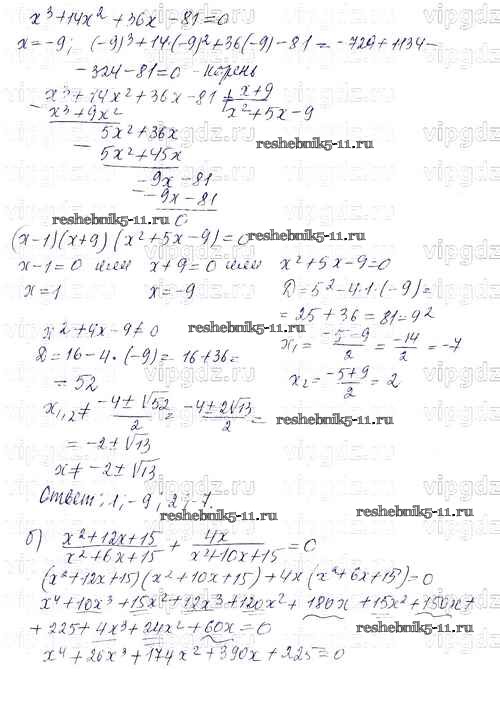 x³+14x²+36x-81=0
x=-9; (-9)³+14·(-9)²+36(-9)-81=-729+1134-
-324-81=0 - корень
x³+14x²+36x-81 | x+9
x³+9x² x²+5x-9
5x²+36x
5x²+45x
-9x-81
-9x-81
0
(x-1)(x+9)(x²+5x-9)=0
x-1=0 или x+9=0 или x²+5x-9=0
x=1 x=-9 D=5²-4·1·(-9)=
=25+36=81=9²
x²+4x-9≠0 x₁=(-5-9)/2=-14/2=-7
D=16-4·(-9)=16+36=
=52 x₂=(-5+9)/2=2
x₁,₂≠(-4±√52)/2=(-4±2√13)/2=
=-2±√13
x≠-2±√13
Ответ: 1; -9; 2; -7
б) (x²+12x+15)/(x²+6x+15)+4x/(x²+10x+15)=0
(x²+12x+15)(x²+10x+15)+4x(x²+6x+15)=0
x⁴+10x³+15x²+12x³+120x²+180x+15x²+150x+
+225+4x³+24x²+60x=0
x⁴+26x³+174x²+390x+225=0
vipgdz.ru
reshebnik5-11.ru